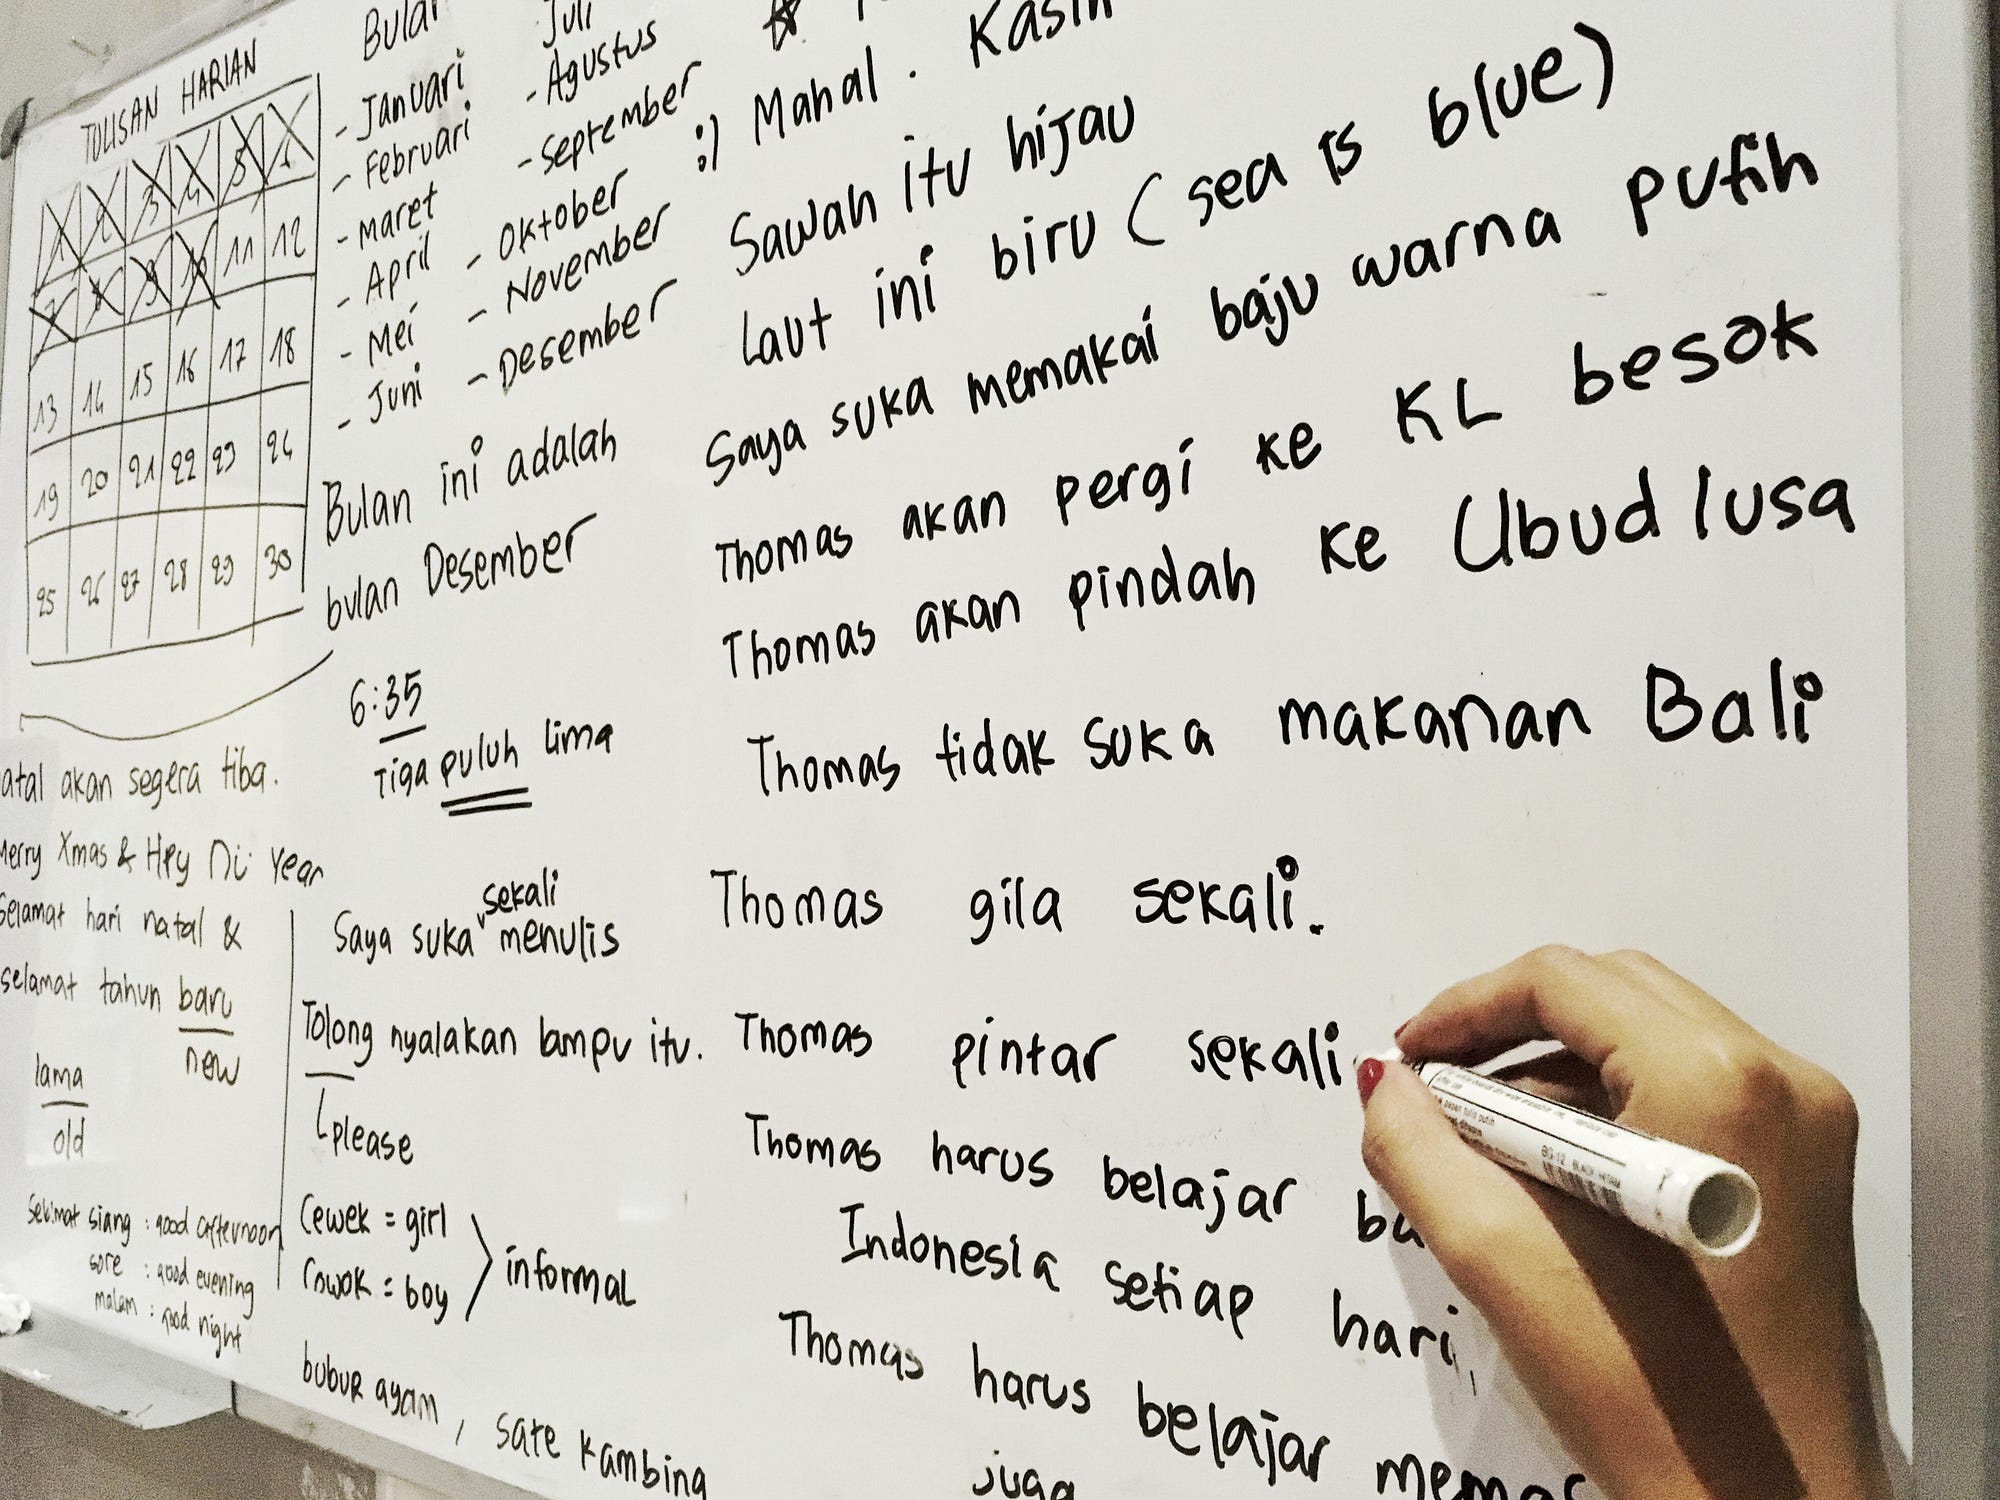 TULISAN HARIAN
1 2 3 4 5 6
7 8 9 10 11 12
13 14 15 16 17 18
19 20 21 22 23 24
25 26 27 28 29 30
akan segera tiba.
Merry Xmas & Hpy Year
Selamat hari natal &
selamat tahun baru
new
lama
old
siang : good afternoon
sore : good evening
malam : good night
Bulan
- Januari
- Februari
- Maret
- April
- Mei
- Juni
Juli
- Agustus
- September
- Oktober
- November
- Desember
Bulan ini adalah
bulan Desember
6:35
Tiga puluh lima
sekali
Saya suka menulis
Tolong nyalakan lampu itu.
please
Cewek = girl
Cowok = boy
informal
bubur ayam, sate kambing
:) Mahal . Kasih
Sawah itu hijau
Laut ini biru (sea is blue)
Saya suka memakai baju warna putih
Thomas akan pergi ke KL besok
Thomas akan pindah ke Ubud lusa
Thomas tidak suka makanan Bali
Thomas gila sekali.
Thomas pintar sekali
Thomas harus belajar
Indonesia setiap hari,
Thomas harus belajar
juga
BG-12 BLACK/HITAM